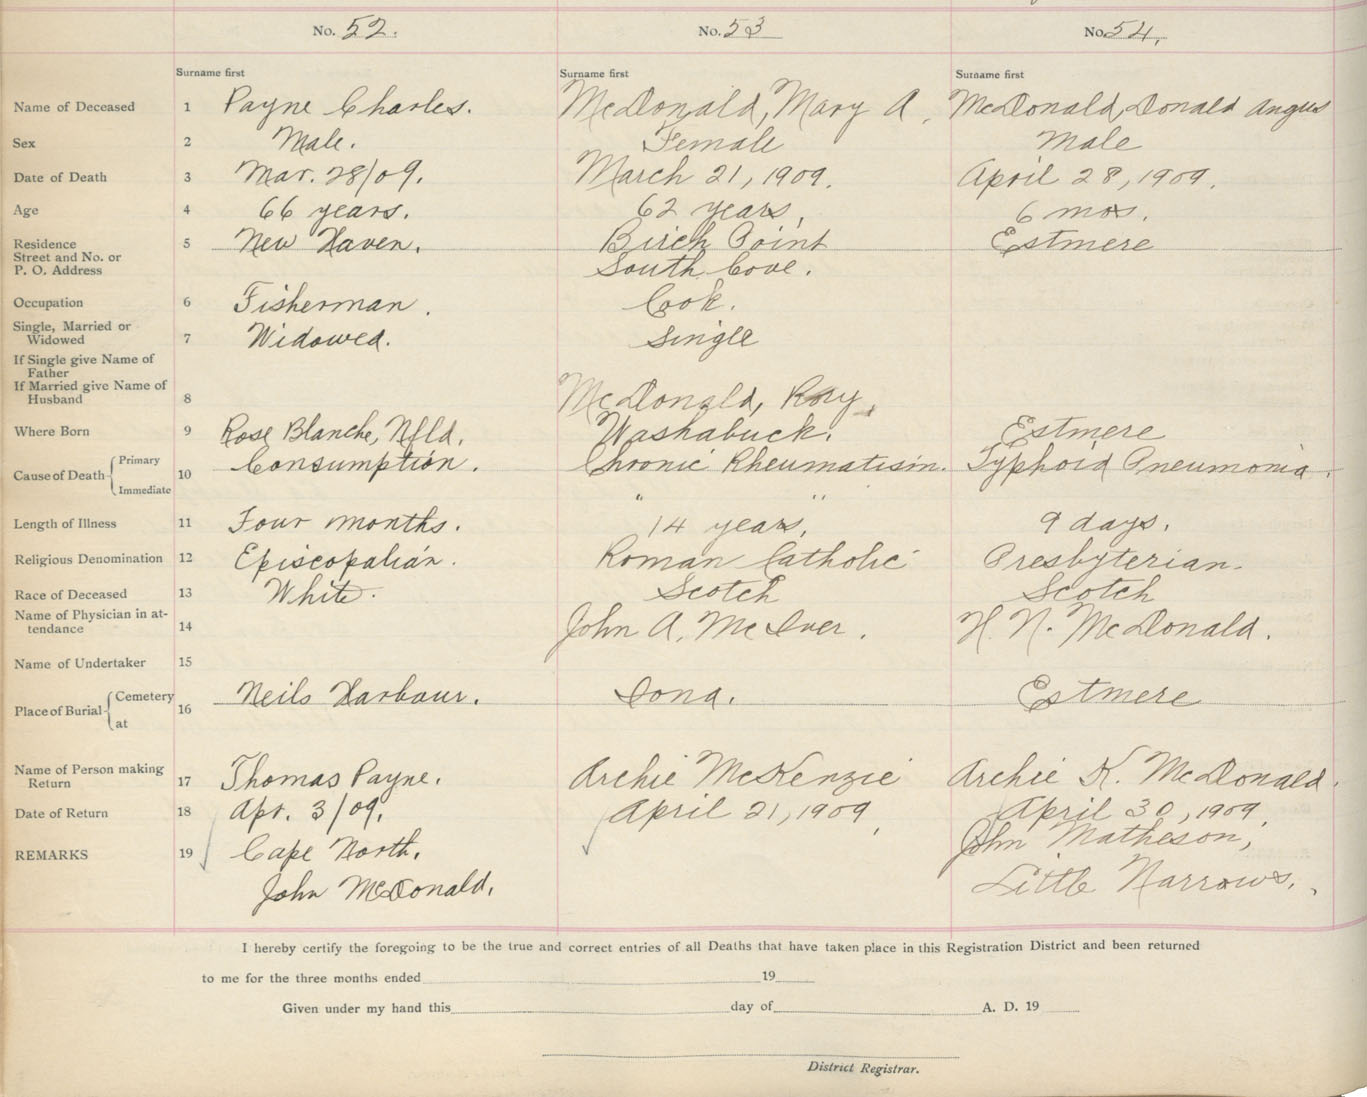 No. 52. No. 53 No. 54.
Surname first Surname first Surname first
Name of Deceased 1 Payne Charles. McDonald, Mary A. McDonald, Donald Angus
Sex 2 Male. Female Male
Date of Death 3 Mar. 28/09. March 21, 1909. April 28, 1909.
Age 4 66 years. 62 years, 6 mos.
Residence 5 New Haven. Birch Point Estmere
Street and No. or South Cove.
P. O. Address
Occupation 6 Fisherman. Cook.
Single, Married or
Widowed 7 Widowed. Single
If Single give Name of
Father
If Married give Name of
Husband 8 McDonald, Rory,
Where Born 9 Rose Blanche, Nfld. Washabuck. Estmere
Cause of Death Primary 10 Consumption. Chronic Rheumatism. Typhoid Pneumonia.
Immediate " "
Length of Illness 11 Four months. 14 years, 9 days.
Religious Denomination 12 Episcopalian. Roman Catholic Presbyterian.
Race of Deceased 13 White. Scotch Scotch
Name of Physician in at-
tendance 14 John A. McIver. H. N. McDonald.
Name of Undertaker 15
Place of Burial Cemetery 16 Neils Harbour. Iona. Estmere
at
Name of Person making
Return 17 Thomas Payne. Archie McKenzie Archie K. McDonald.
Date of Return 18 Apr. 3/09. April 21, 1909, April 30, 1909.
REMARKS 19 Cape North. John Matheson,
John McDonald. Little Narrows.
I hereby certify the foregoing to be the true and correct entries of all Deaths that have taken place in this Registration District and been returned
to me for the three months ended 19
Given under my hand this day of A. D. 19
District Registrar.